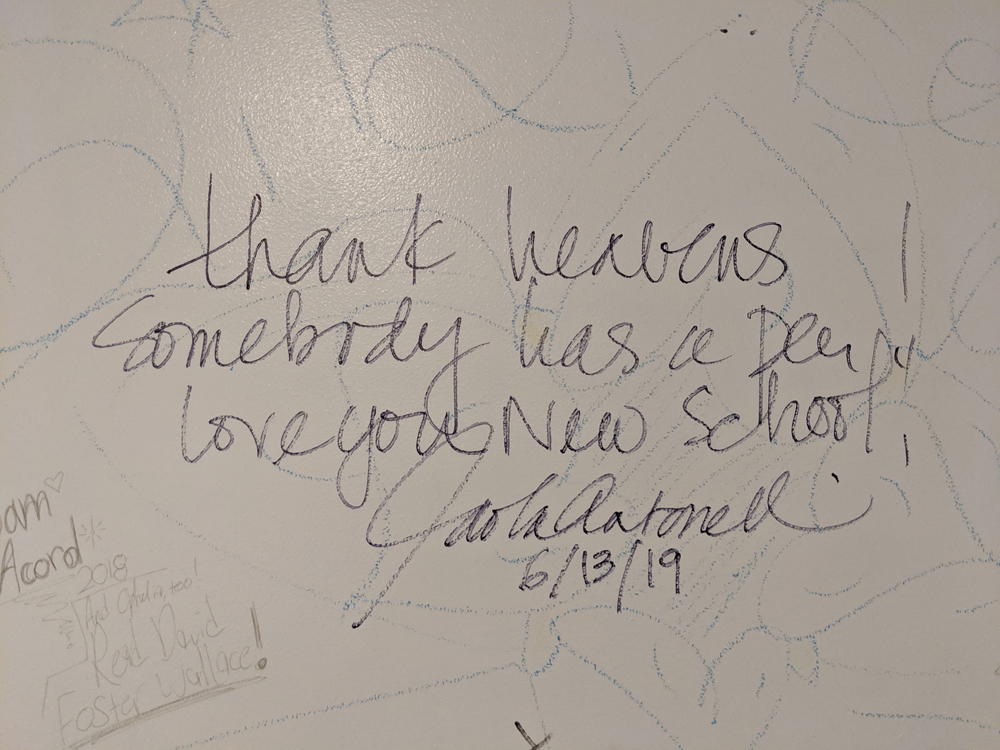 thank heavens !
Somebody has a pen !
love you New School !
Paola Antonelli
6/13/19
Acord
2018
And Ophelia, too!
Read David
Foster Wallace!